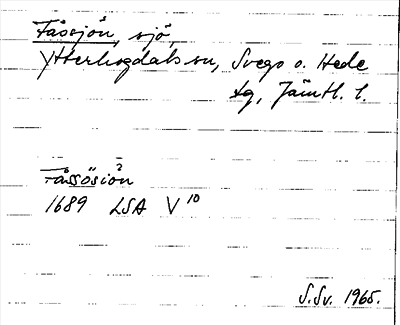 Fåssjön, sjö,
Ytterhogdals sn, Svegs o. Hede
tg, Jämtl. l.
Fåssösiön 2
1689 LSA V 10
S.Sv. 1965.